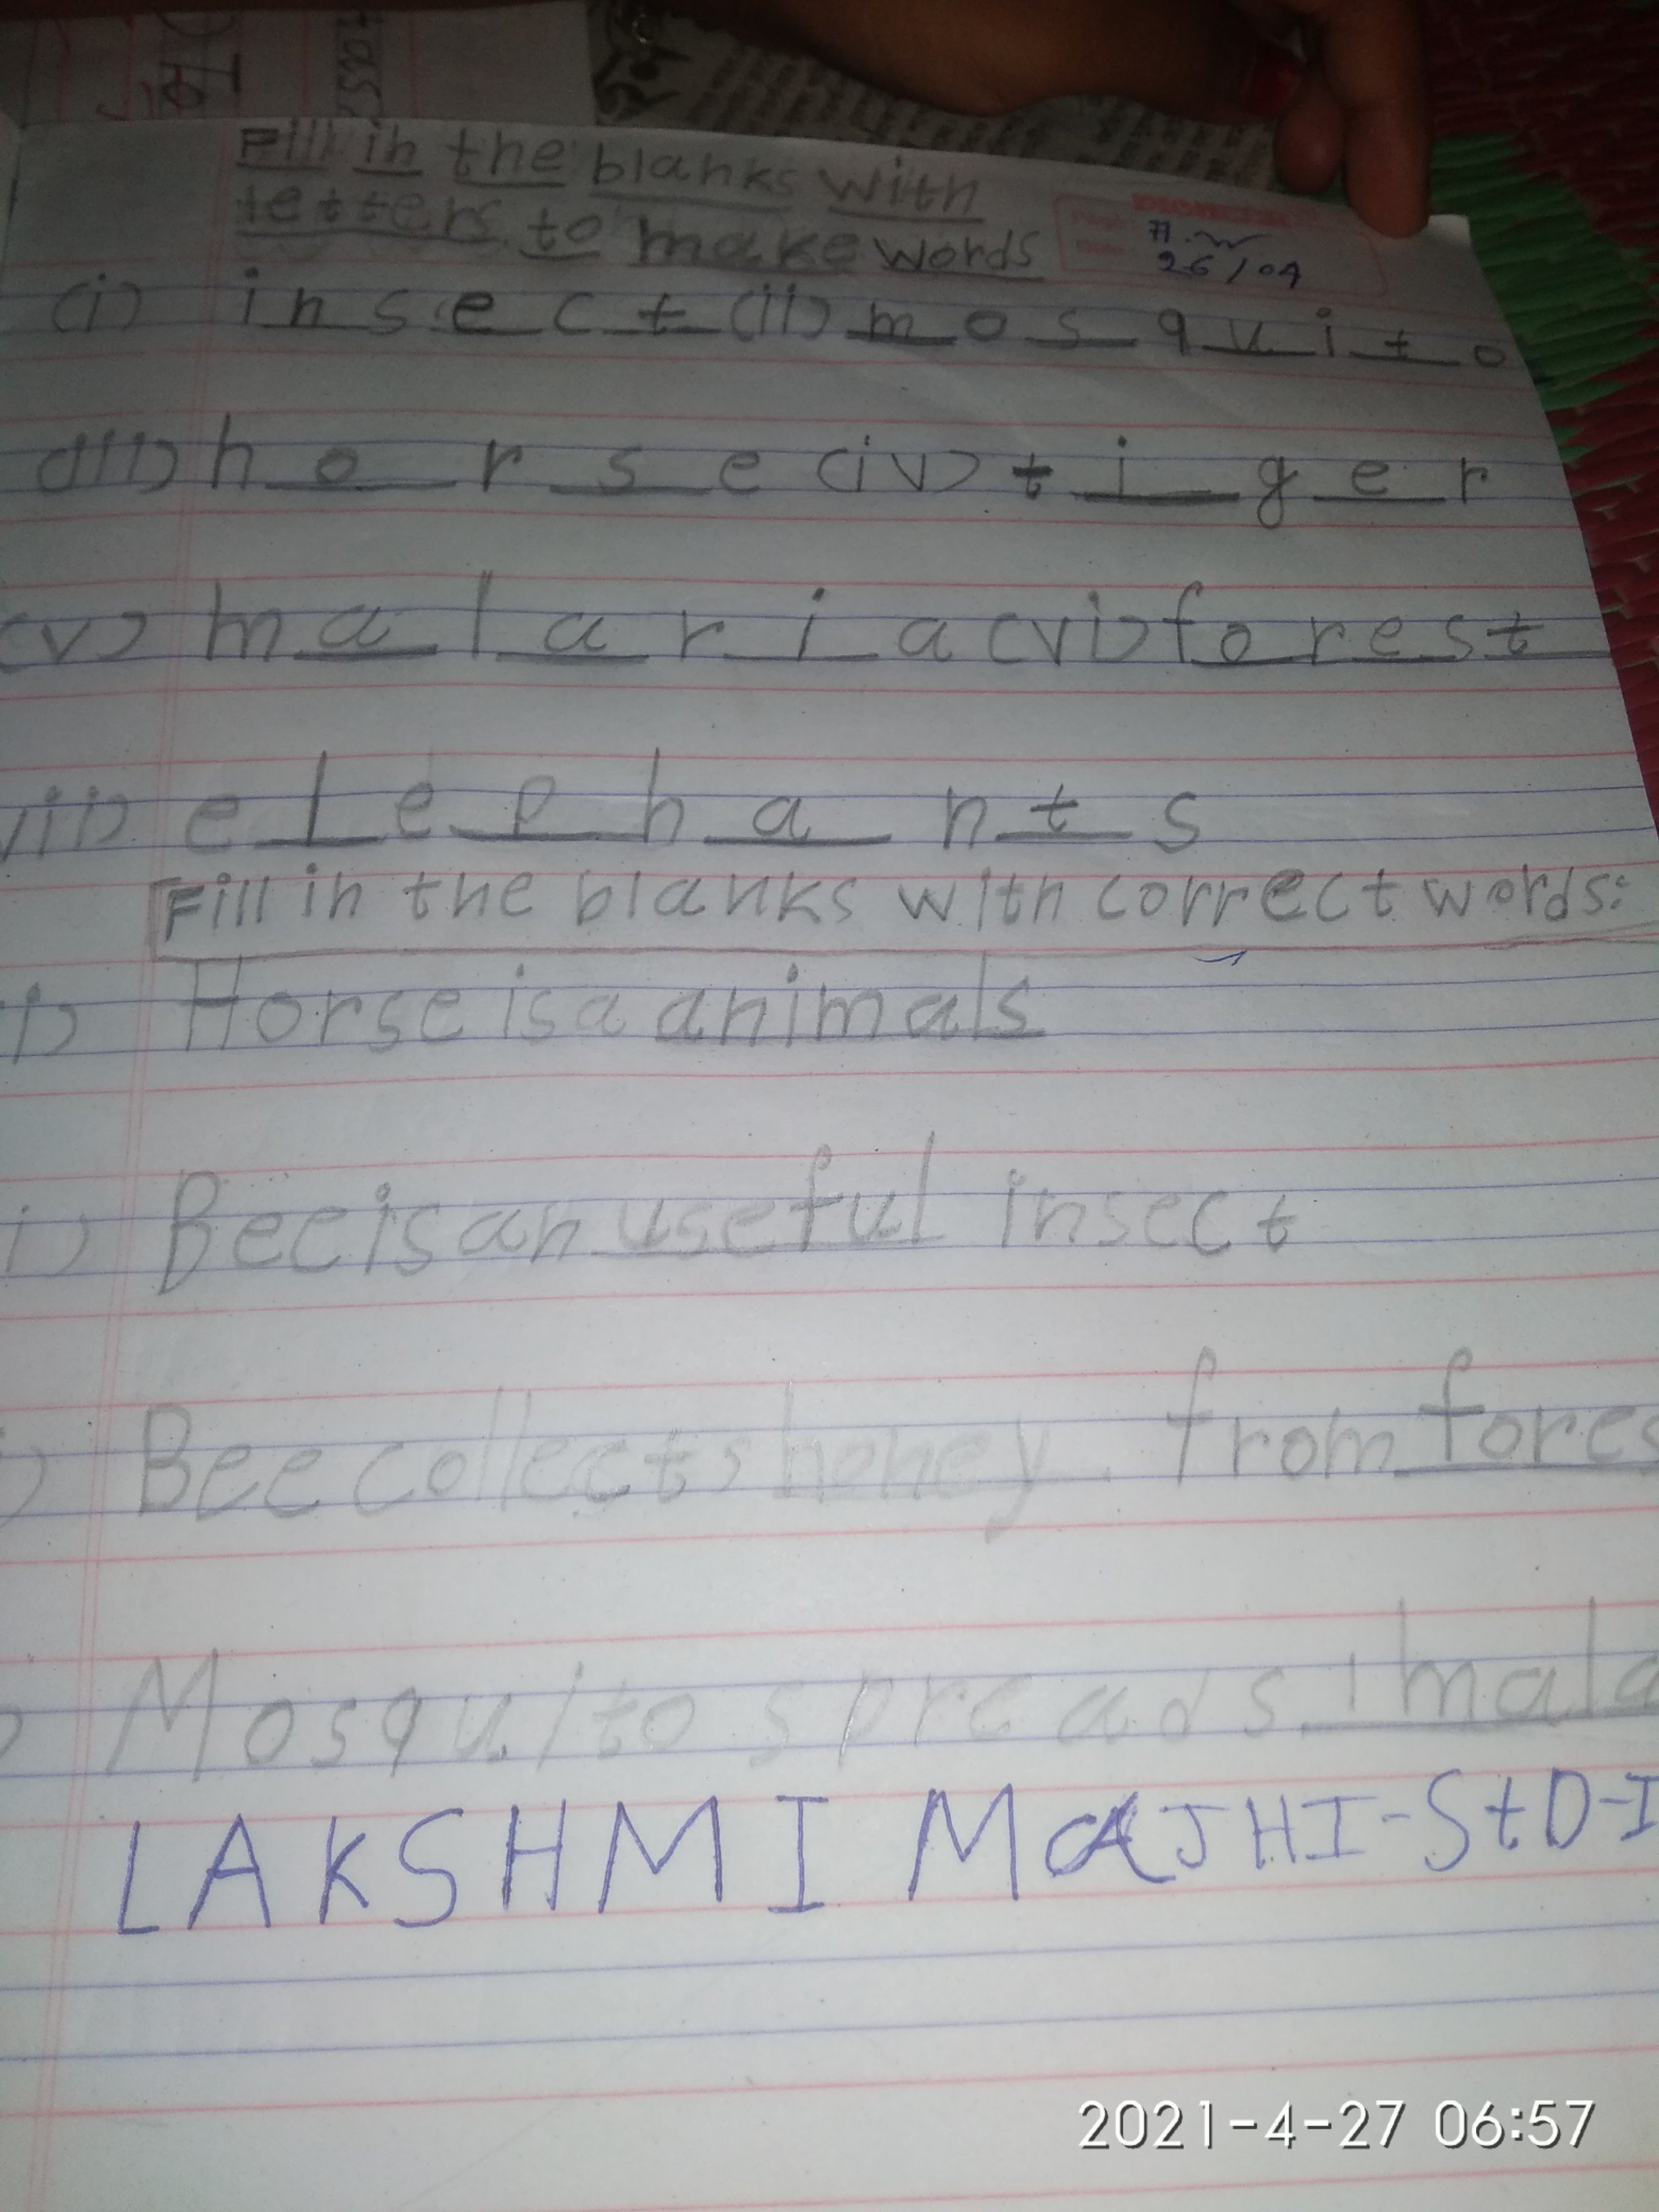 Fill in the blanks with
letters to make words
H.W
26/04
(i) insect (ii) mosquito
(iii) horse (iv) tiger
(v) malaria (vi) forest
vii) elephants
Fill in the blanks with correct words:
i) Horse is a animals
i) Bee is an useful insect
) Bee collects honey. from fores
) Mosquito spreads mala
LAKSHMI MAJHI-StD-I
2021-4-27 06:57